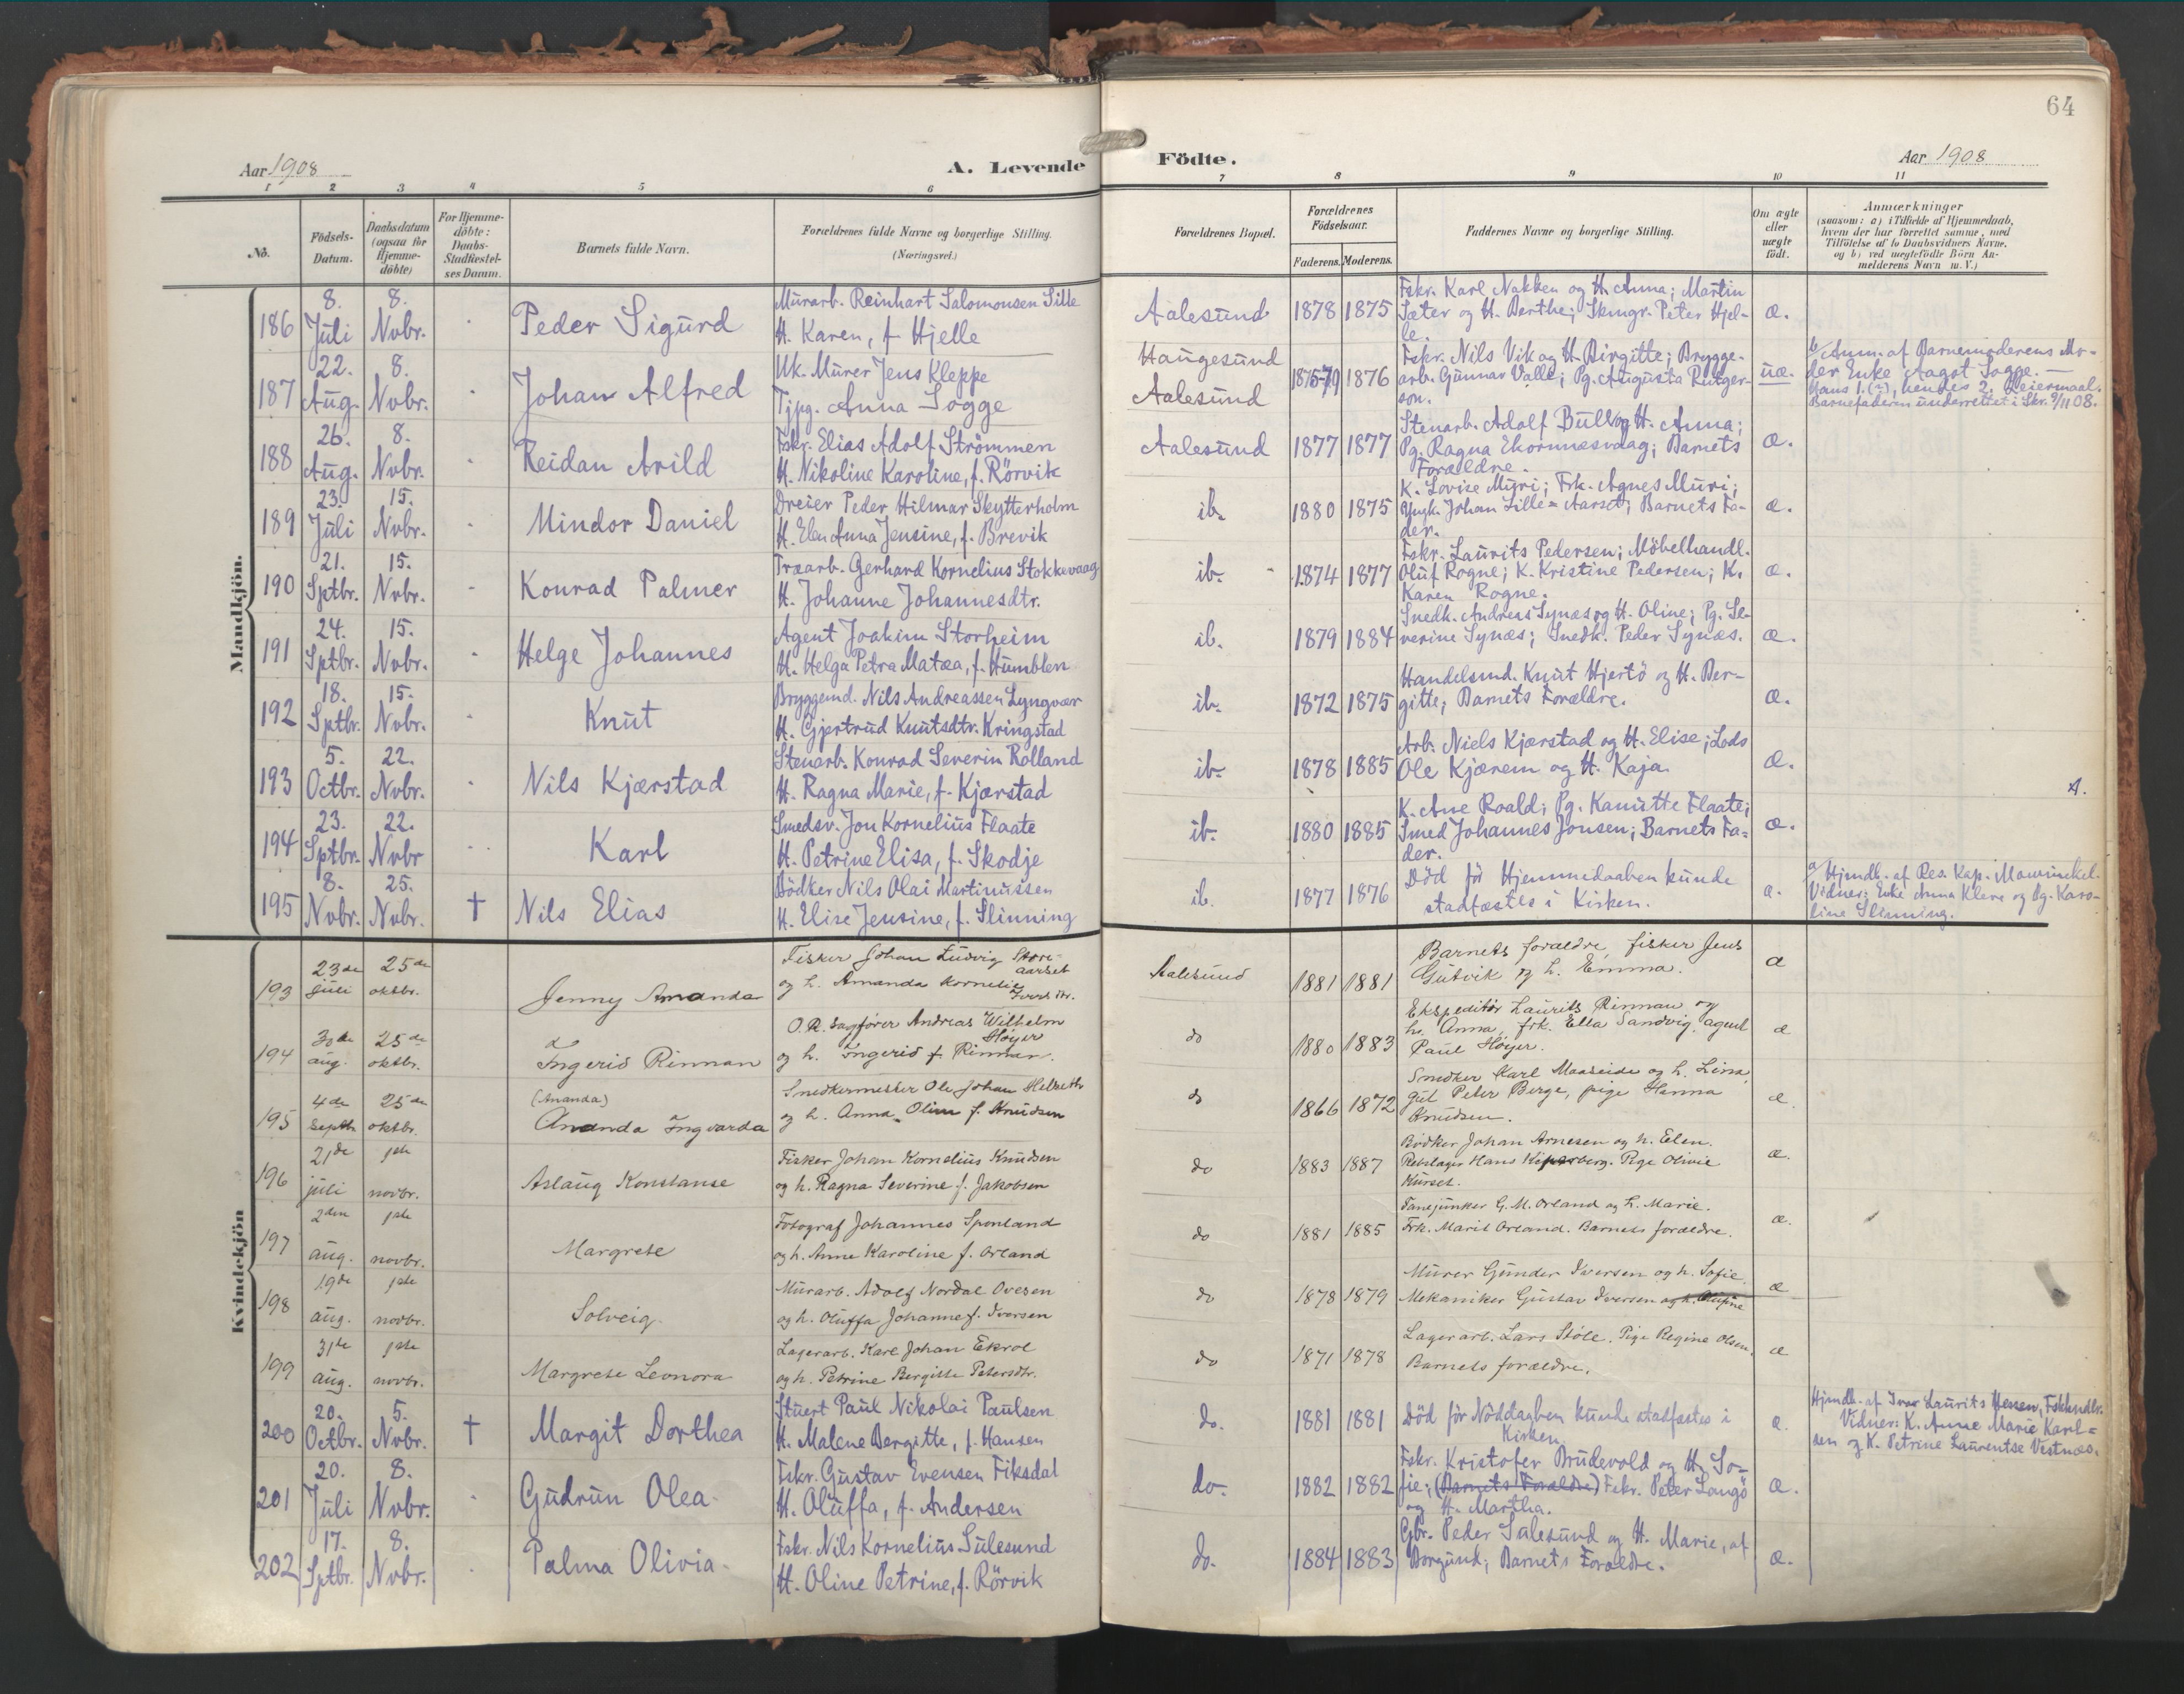 64
Aar 1908
A. Levende
Födte.
Aar 1908
1 2 3 4 5 6 7 8 9 10 11
No.
Födsels-Datum.
Daabsdatum (ogsaa for Hjemme-döbte)
For Hjemme-döbte: Daabs-Stadfæstel-ses Datum.
Barnets fulde Navn.
Forældrenes fulde Navne og borgerlige Stilling. (Næringsvei.)
Forældrenes Bopæl.
Forældrenes Födselsaar.
Faderens. Moderens.
Faddernes Navne og borgerlige Stilling.
Om ægte eller uægte födt.
Anmærkninger
(saasom: a) i Tilfælde af Hjemmedaab,
hvem der har forrettet samme, med
Tilföielse af to Daabsvidners Navne,
og b) ved uægtefödte Börn An-
melderens Navn m. V.)
Mandkjön.
186 8. Juli 8. Nvbr. - Peder Sigurd
Murarb. Reinhart Salomonsen Sille
H. Karen, f. Hjelle
Aalesund 1878 1875
Fskr. Karl Nakken og H. Anna; Martin
Sæter og H. Berthe; Skmgr. Peter Hjel-
le.
æ.
187 22. Aug. 8. Nvbr. - Johan Alfred
Uk. Murer Jens Kleppe
Tjpg. Anna Sogge
Haugesund
Aalesund 1875-79 1876
Fskr. Nils Vik og H. Birgitte; Brygge-
arb. Gunnar Valle; Pg. Augusta Rutger-
son.
uæ.
b/ Anm. af Barnemoderens Mo-
der Enke Aagot Sogge. —
Hans 1. (?), hendes 2. Leiermaal.
Barnefaderen underrettet i Skr. 9/11 08.
188 26. Aug. 8. Nvbr. - Reidan Arild
Fskr. Elias Adolf Strömmen
H. Nikoline Karoline, f. Rörvik
Aalesund 1877 1877
Stenarb. Adolf Bull og H. Anna;
Pg. Ragna Ekornnæsvaag; Barnets
Forældre.
æ.
189 23. Juli 15. Nvbr. - Mindor Daniel
Dreier Peder Hilmar Skytterholm
H. Elen Anna Jensine, f. Brevik
ib. 1880 1875
K. Lovise Muri; Frk. Agnes Muri;
Yngk. Johan Lille-Aarset; Barnets Fa-
der.
æ.
190 21. Sptbr. 15. Nvbr. - Konrad Palmer
Træarb. Gerhard Kornelius Stokkevaag
H. Johanne Johannesdtr.
ib. 1874 1877
Fskr. Laurits Pedersen; Möbelhandl.
Oluf Rogne; K. Kristine Pedersen; K.
Karen Rogne.
æ.
191 24. Sptbr. 15. Nvbr. - Helge Johannes
Agent Joakim Storheim
H. Helga Petra Matea, f. Humblen
ib. 1879 1884
Snedk. Andreas Synæs og H. Oline; Pg. Se-
verine Synæs; Snedk. Peder Synæs.
æ.
192 18. Sptbr. 15. Nvbr. - Knut
Bryggemd. Nils Andreassen Lyngvær
H. Gjertrud Knutsdtr. Kringstad
ib. 1872 1875
Handelsmd. Knut Hjertö og H. Ber-
gitte; Barnets Forældre.
æ.
193 5. Octbr. 22. Nvbr. - Nils Kjærstad
Stenarb. Konrad Severin Rolland
H. Ragna Marie, f. Kjærstad
ib. 1878 1885
Arb. Niels Kjærstad og H. Elise; Lods
Ole Kjærem og H. Kaja.
æ.
194 23. Sptbr. 22. Nvbr - Karl
Smedsv. Jon Kornelius Flaate
H. Petrine Elisa, f. Skodje
ib. 1880 1885
K. Ane Roald; Pg. Kanutte Flaate;
Smed Johannes Jonsen; Barnets Fa-
der.
æ.
195 8. Nvbr. 25. Nvbr. † Nils Elias
Bödker Nils Olai Martinussen
H. Elise Jensine, f. Slinning
ib. 1877 1876
Död för Hjemmedaaben kunde
stadfæstes i Kirken.
æ.
a/ Hjmdb. af Res. Kap. Mowinckel.
Vidner: Enke Anna Kleve og Pg. Karo-
line Slinning.
Kvindekjön
193 23de juli 25de oktbr. Jenny Amanda
Fisker Johan Ludvig Store-
aarset
og h. Amanda Kornelie
Iversdtr.
Aalesund 1881 1881
Barnets forældre, fisker Jens
Gutvik og h. Emma.
æ
194 30te aug. 25de oktbr. Ingerid Rinnan
O.R. Sagfører Andreas Wilhelm
Høyer
og h. Ingerid f. Rinnan.
do 1880 1883
Ekspeditør Laurits Rinnan og
h. Anna, frk. Ella Sandvig, agent
Paul Høyer.
æ
195 4de septb. 25de oktbr. (Ananda)
Ananda Ingvarda
Snedkermester Ole Johan Helseth
og h. Anna Oline f. Knudsen
do 1866 1872
Snedker Karl Maaseide og h. Lina,
gut Peter Berge, pige Hanna
Knudsen.
æ.
196 21de juli 1ste novbr. Aslaug Konstanse
Fisker Johan Kornelius Knudsen
og h. Ragna Severine f. Jakobsen
do 1883 1887
Bødker Johan Arnesen og h. Elen.
Rebslager Hans Kipperberg. Pige Olivie
Kurset.
æ.
197 2den aug. 1ste novbr. Margrete
Fotograf Johannes Sponland
og h. Anne Karoline f. Orland
do 1881 1885
Fanejunker G. M. Orland og h. Marie.
Frk. Marit Orland. Barnets forældre.
æ.
198 19de aug. 1ste novbr. Solveig.
Murarb. Adolf Nordal Ovesen
og h. Oluffa Johanne f. Iversen
do 1878 1879
Murer Gunder Iversen og h. Sofie.
Mekaniker Gustav Iversen og h.
æ
199 31te aug. 1ste novbr. Margrete Leonora
Lagerarb. Karl Johan Ekrol
og h. Petrine Bergitte Petersdtr.
do 1871 1878
Lagerarb. Lars Støle. Pige Regine Olsen.
Barnets forældre.
æ
200 20. Octbr. 5. Nvbr. † Margit Dorthea
Stuert Paul Nikolai Paulsen
H. Malene Bergitte, f. Hansen
do. 1881 1881
Död för Nöddaaben kunde stadfæstes i
Kirken.
æ.
Hjmdb. af Ivar Laurits Henen, Fskhndlr.
Vidner: K. Anne Marie Karl-
sen og K. Petrine Laurentse Vestnæs.
201 20. Juli 8. Nvbr. - Gudrun Olea
Fskr. Gustav Evensen Fiksdal
H. Oluffa, f. Andersen
do. 1882 1882
Fskr. Kristofer Brudevold og H. So-
fie; (Barnets Forældre) Fskr. Peter Longö
og H. Martha.
æ.
202 17. Sptbr. 8. Nvbr. - Palma Olivia
Fskr. Nils Kornelius Sulesund
H. Oline Petrine, f. Rörvik
do. 1884 1883
Gbr. Peder Sulesund og H. Marie, af
Borgund; Barnets Forældre.
æ.